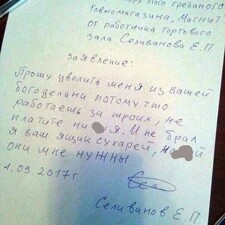 этого гребаного
Говномагазина, Магнит
от работника торгового
зала Селиванова Е.П.
заявление:
Прошу уволить меня из вашей
богодельни потому что
работаешь за троих, не
платите ни я. Мне брал
я ваш ящик сухарей, й
они мне нужны
1.09.2017г.
Селиванов Е.П.